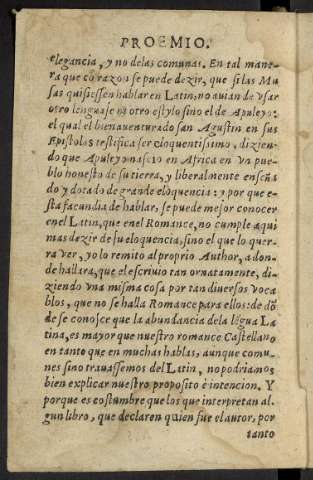 PROEMIO.
elegancia, y no delas comunas. En tal mane-
ra que cō razon se puede dezir, que si las Mu
sas quisiessen hablar en Latin, no auian de vsar
otro lenguaje ni otro estylo sino el de Apuleyo:
el qual el bienauenturado san Agustin en sus
Epistolas testifica ser eloquentissimo, dizien-
do que Apuleyo nascio en Africa en vn pue-
blo honesto de su tierra, y liberalmente enseña
do y dotado de grande eloquencia: y por que e-
sta facundia de hablar, se puede mejor conocer
en el Latin, que en el Romance, no cumple aqui
mas dezir de su eloquencia, sino el que lo quer-
ra ver, yo lo remito al proprio Author, a don-
de hallara, que el escriuio tan ornatamente, di-
ziendo vna misma cosa por tan diuersos voca
blos, que no se halla Romance para ellos: de dō
de se conosce que la abundancia dela lēgua La
tina, es mayor que nuestro romance Castellano
en tanto que en muchas hablas, aunque comu-
nes sino trauassemos del Latin, no podriamos
bien explicar nuestro proposito è intencion. Y
porque es costumbre que los que interpretan al-
gun libro, que declaren quien fue el autor, por
tanto